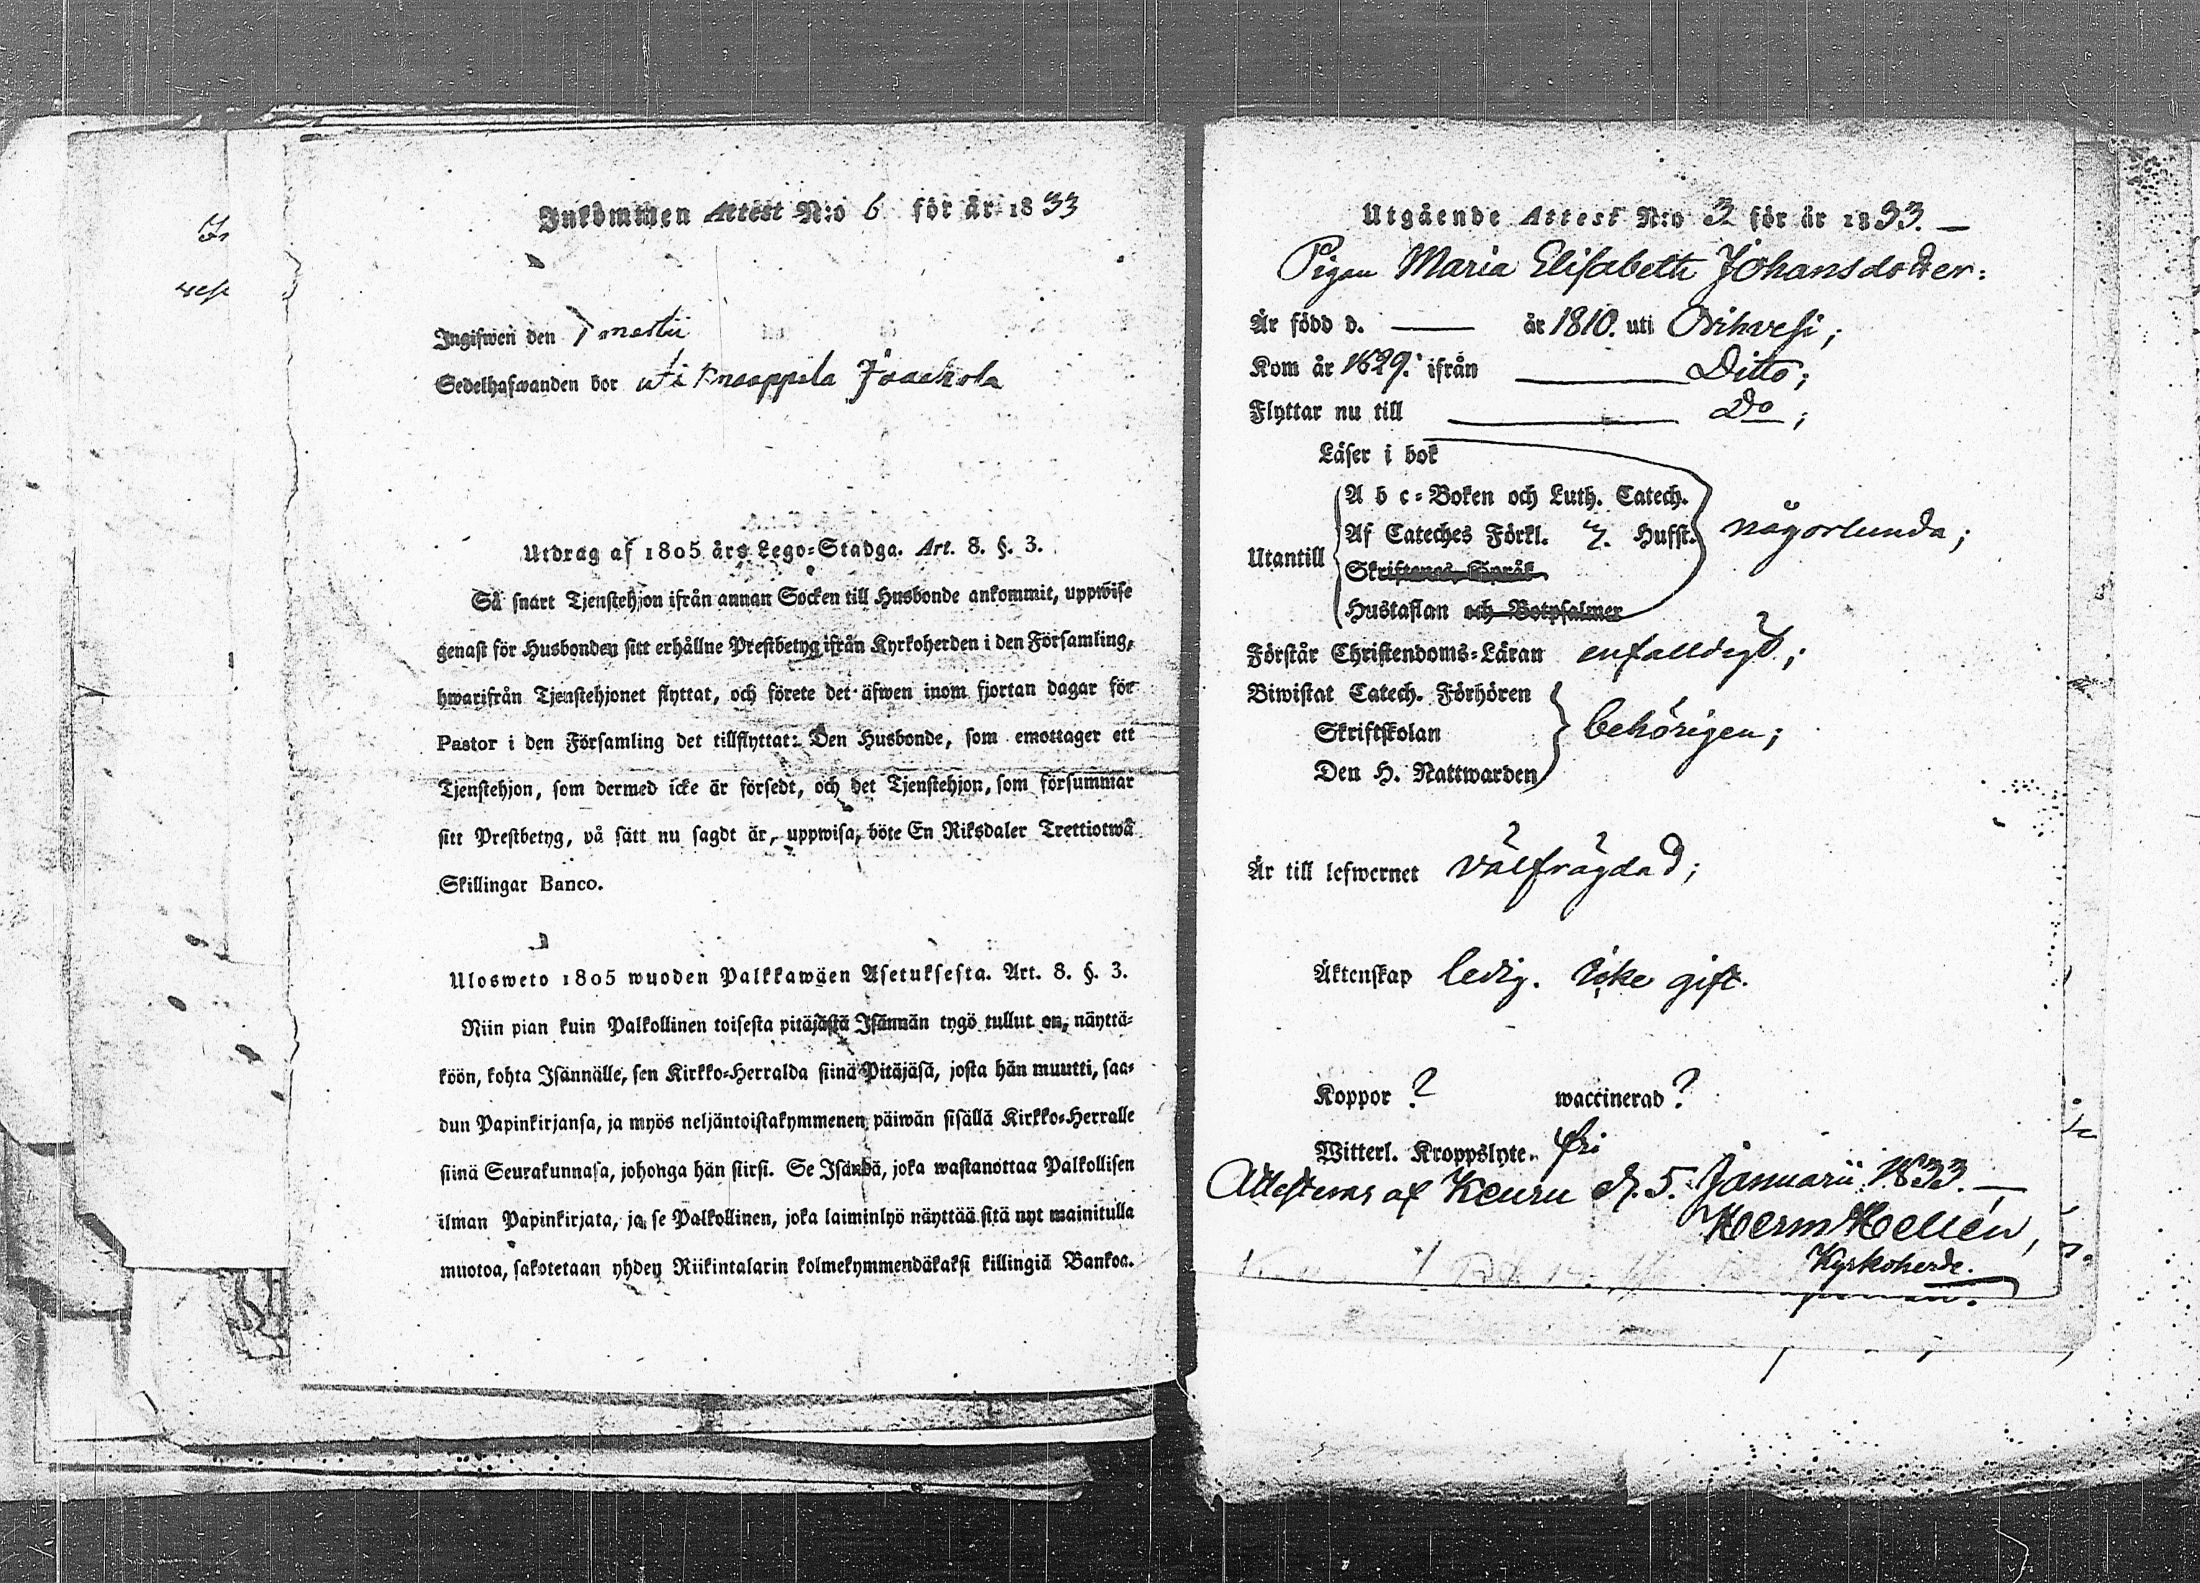 Inkommen Attest N:o 6 för år 1833
Ingifwen den 7 martii
Sedelhafwanden bor uti Knaappila Jaackola
Utdrag af 1805 års Lego=Stadga. Art. 8. §. 3.
Så snart Tjenstehjon ifrån annan Socken till Husbonde ankommit, uppwise
genast för Husbonden sitt erhållne Prestbetyg ifrån Kyrkoherden i den Församling,
hwarifrån Tjenstehjonet flyttat, och förete det äfwen inom fjortan dagar för
Pastor i den Församling det tillflyttat: Den Husbonde, som emottager ett
Tjenstehjon, som dermed icke är försedt, och det Tjenstehjon, som försummar
sitt Prestbetyg, på sätt nu sagdt är, uppwisa, böte En Riksdaler Trettiotwå
Skillingar Banco.
Ulosweto 1805 wuoden Palkkawäen Asetuksesta. Art. 8. §. 3.
Niin pian kuin Palkollinen toisesta pitäjästä Isännän tygö tullut on, näyttä=
köön, kohta Isännälle, sen Kirkko=Herralda siinä Pitäjäsä, josta hän muutti, saa=
dun Papinkirjansa, ja myös neljäntoistakymmenen päiwän sisällä Kirkko=Herralle
siinä Seurakunnasa, johonga hän siirsi. Se Isändä, joka wastanottaa Palkollisen
ilman Papinkirjata, ja se Palkollinen, joka laiminlyö näyttää sitä nyt mainitulla
muotoa, sakotetaan yhden Riikintalarin kolmekymmendäkaksi killingiä Bankoa.
Utgående Attest N:o 3 för år 1833.
Pigan Maria Elisabeth Johansdotter:
Är född d. — år 1810. uti Orihvesi;
Kom år 1829. ifrån — Ditto;
Flyttar nu till — Do;
Läser i bok
Utantill
A b c=Boken och Luth. Catech.
Af Cateches Förkl. 7. Husst.
Skriftenes Språk
Hustaflan och Botpsalmer
någorlunda;
Förstår Christendoms=Läran enfalldigt;
Biwistat Catech. Förhören
Skriftskolan behörigen;
Den H. Nattwarden
Är till lefwernet välfrägdad;
Äktenskap ledig. icke gift.
Koppor ? waccinerad ?
Witterl. Kroppslyte. fri
Attesteras af Keuru d. 5. Januarii 1833.
Herm Hellén,
Kyrkoherde.